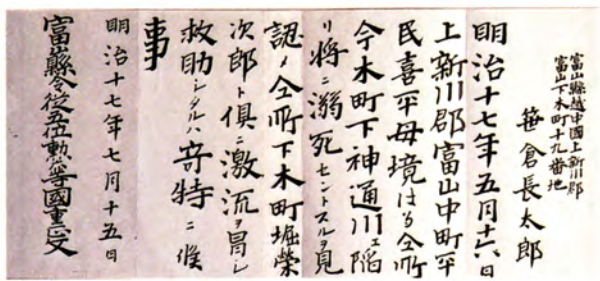 富山縣越中國上新川郡
富山下木町十九番地
笹倉長太郎
明治十七年五月十六日
上新川郡富山中町平
民喜平母境はる仝所
今木町下神通川エ陥
リ將ニ溺死セントスルヲ見
認メ仝所下木町堀榮
次郎ト倶ニ激流ヲ冒シ
救助シタルハ奇特ニ候
事
明治十七年七月十五日
富山縣令從五位勲六等國重正文